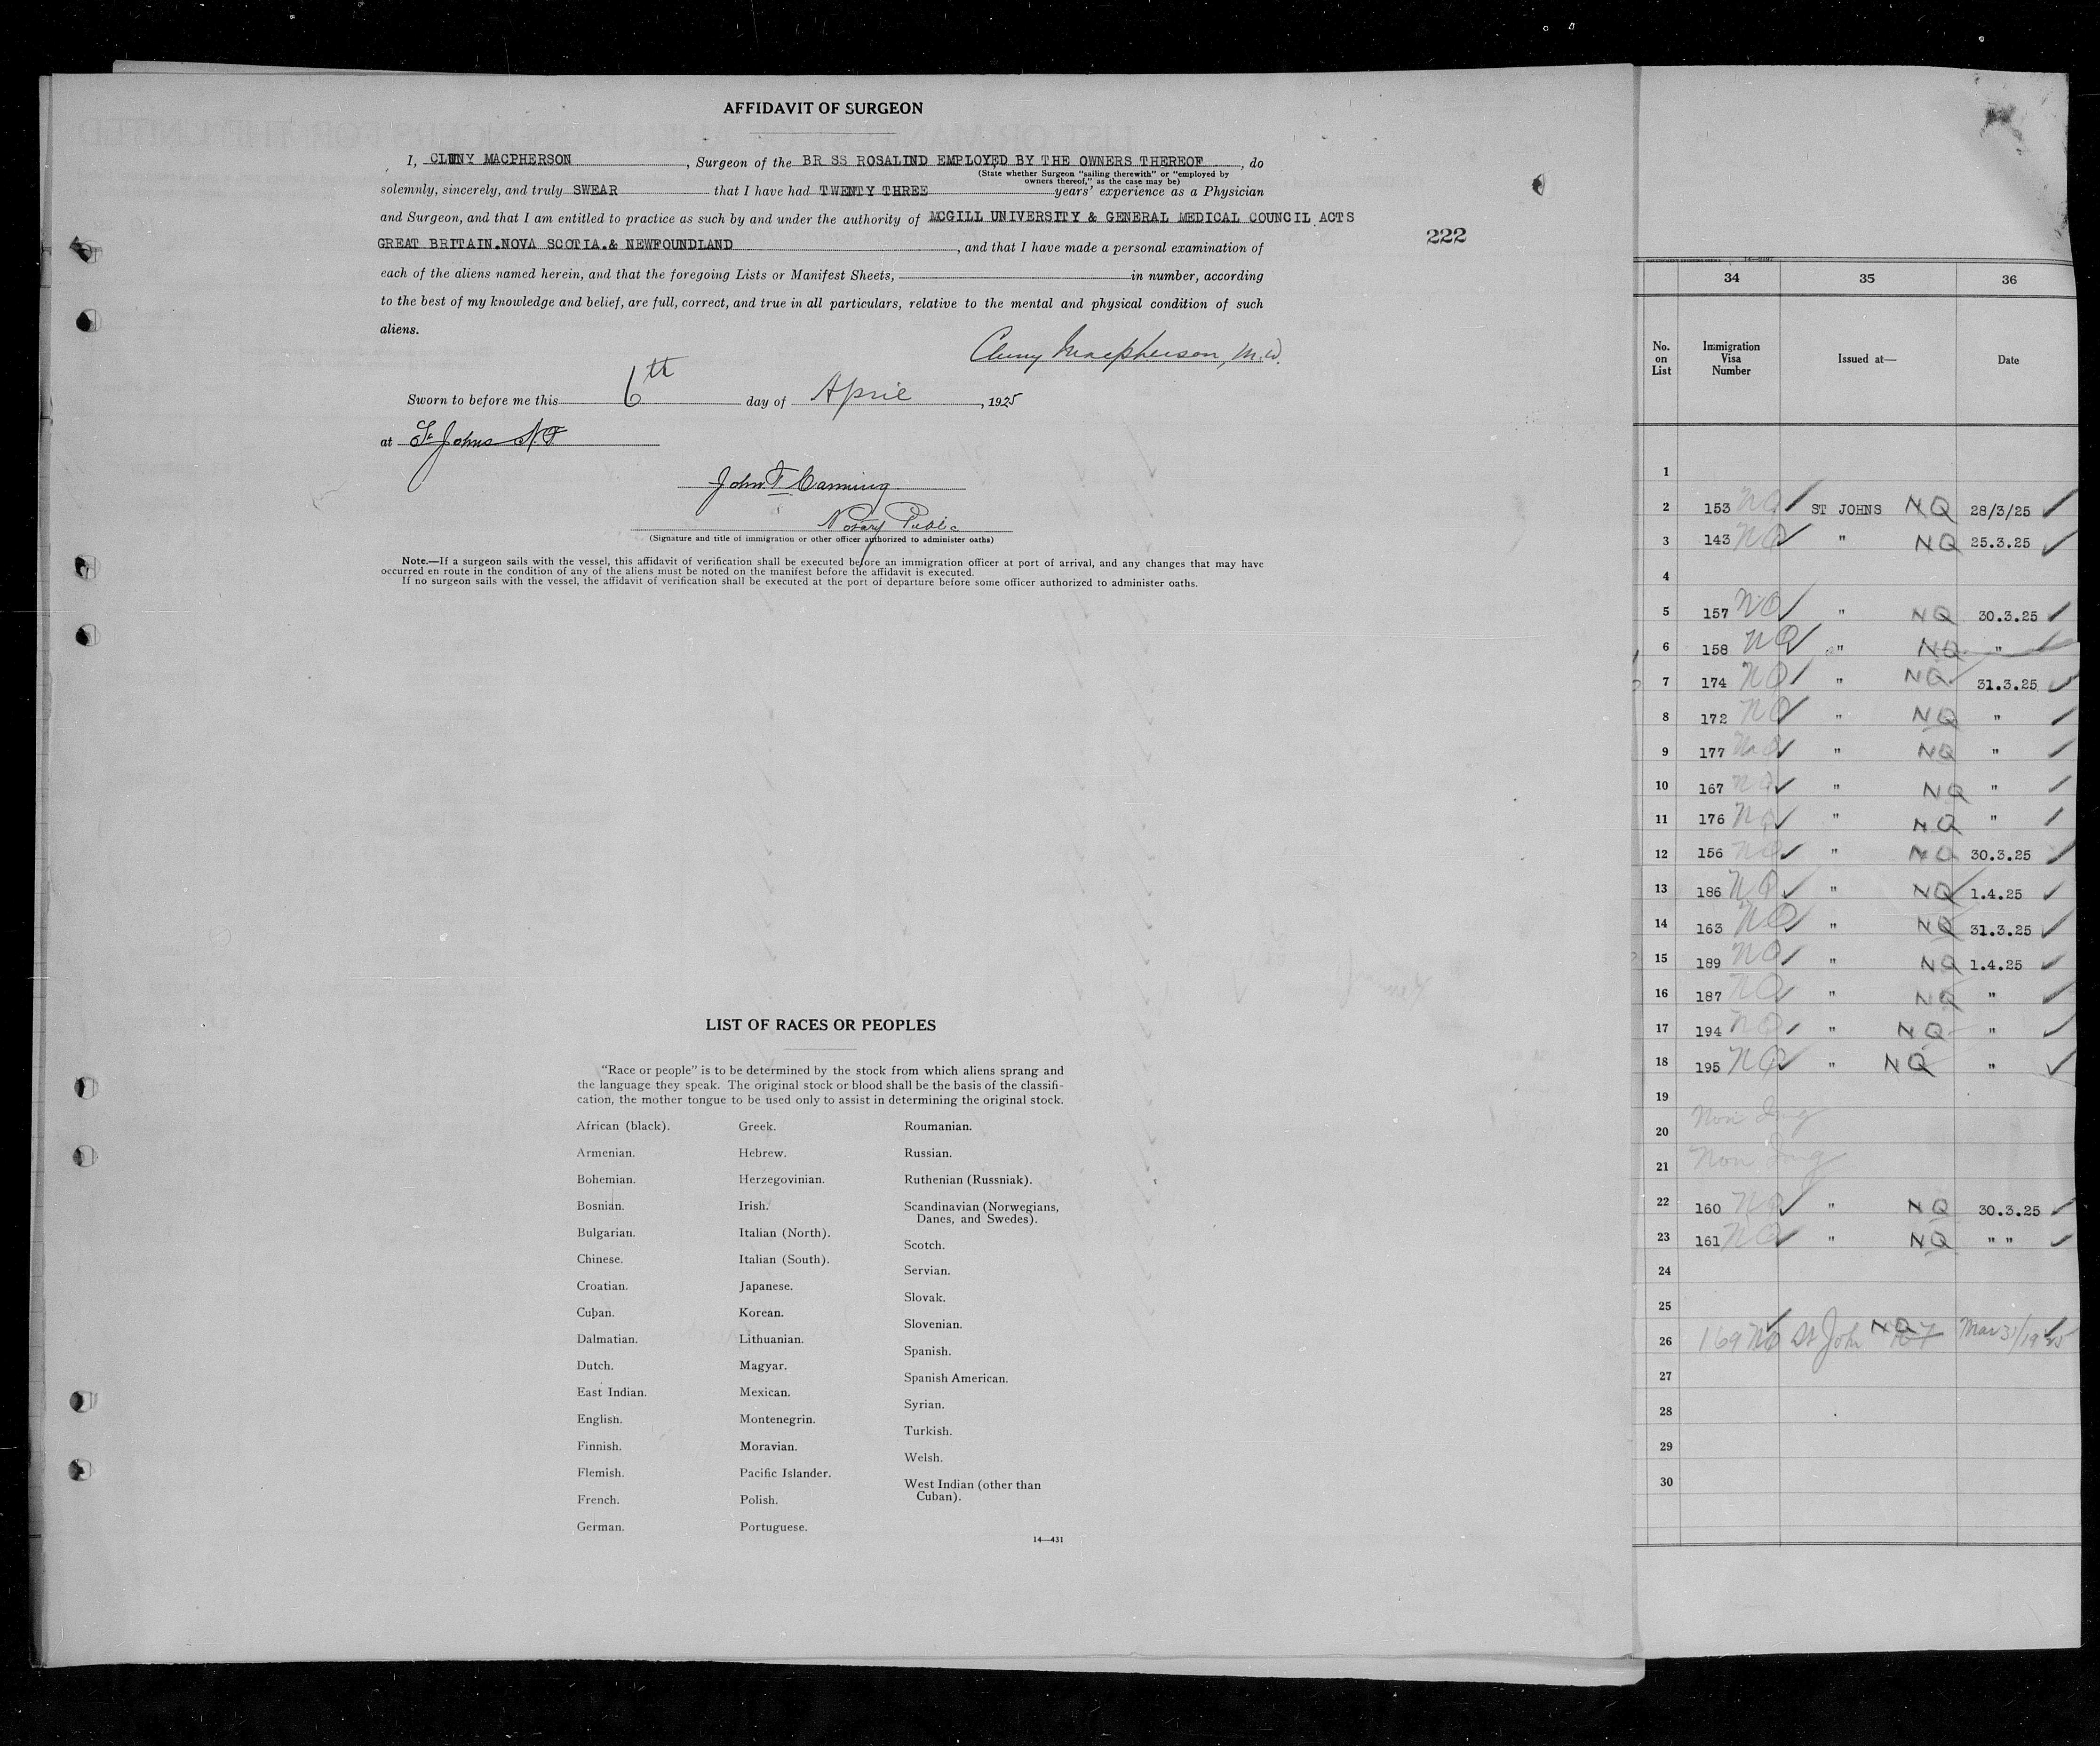 AFFIDAVIT OF SURGEON
I, CLUNY MACPHERSON, Surgeon of the BR SS ROSALIND EMPLOYED BY THE OWNERS THEREOF, do
(State whether Surgeon "sailing therewith" or "employed by
owners thereof," as the case may be)
solemnly, sincerely, and truly SWEAR that I have had TWENTY THREE years' experience as a Physician
and Surgeon, and that I am entitled to practice as such by and under the authority of MCGILL UNIVERSITY & GENERAL MEDICAL COUNCIL ACTS
GREAT BRITAIN.NOVA SCOTIA.& NEWFOUNDLAND, and that I have made a personal examination of
222
each of the aliens named herein, and that the foregoing Lists or Manifest Sheets, in number, according
to the best of my knowledge and belief, are full, correct, and true in all particulars, relative to the mental and physical condition of such
aliens.
Cluny Macpherson, M.D.
Sworn to before me this 6th day of April, 1925
at St Johns N.F
John F Canning
Notary Public
(Signature and title of immigration or other officer authorized to administer oaths)
Note.—If a surgeon sails with the vessel, this affidavit of verification shall be executed before an immigration officer at port of arrival, and any changes that may have
occurred en route in the condition of any of the aliens must be noted on the manifest before the affidavit is executed.
If no surgeon sails with the vessel, the affidavit of verification shall be executed at the port of departure before some officer authorized to administer oaths.
LIST OF RACES OR PEOPLES
"Race or people" is to be determined by the stock from which aliens sprang and
the language they speak. The original stock or blood shall be the basis of the classifi-
cation, the mother tongue to be used only to assist in determining the original stock.
African (black).
Armenian.
Bohemian.
Bosnian.
Bulgarian.
Chinese.
Croatian.
Cuban.
Dalmatian.
Dutch.
East Indian.
English.
Finnish.
Flemish.
French.
German.
Greek.
Hebrew.
Herzegovinian.
Irish.
Italian (North).
Italian (South).
Japanese.
Korean.
Lithuanian.
Magyar.
Mexican.
Montenegrin.
Moravian.
Pacific Islander.
Polish.
Portuguese.
Roumanian.
Russian.
Ruthenian (Russniak).
Scandinavian (Norwegians,
Danes, and Swedes).
Scotch.
Servian.
Slovak.
Slovenian.
Spanish.
Spanish American.
Syrian.
Turkish.
Welsh.
West Indian (other than
Cuban).
14—431
34 35 36
No. on List Immigration Visa Number Issued at— Date
1
2 153 NQ ST JOHNS NQ 28/3/25
3 143 NQ " NQ 25.3.25
4
5 157 NQ " NQ 30.3.25
6 158 NQ " NQ "
7 174 NQ " NQ 31.3.25
8 172 NQ " NQ "
9 177 NQ " NQ "
10 167 NQ " NQ "
11 176 NQ " NQ "
12 156 NQ " NQ 30.3.25
13 186 NQ " NQ 1.4.25
14 163 NQ " NQ 31.3.25
15 189 NQ " NQ 1.4.25
16 187 NQ " NQ "
17 194 NQ " NQ "
18 195 NQ " NQ "
19
20 Non Img
21 Non Img
22 160 NQ " NQ 30.3.25
23 161 NQ " NQ " "
24
25
26 169 NQ St John NQ Mar 31/1925
27
28
29
30